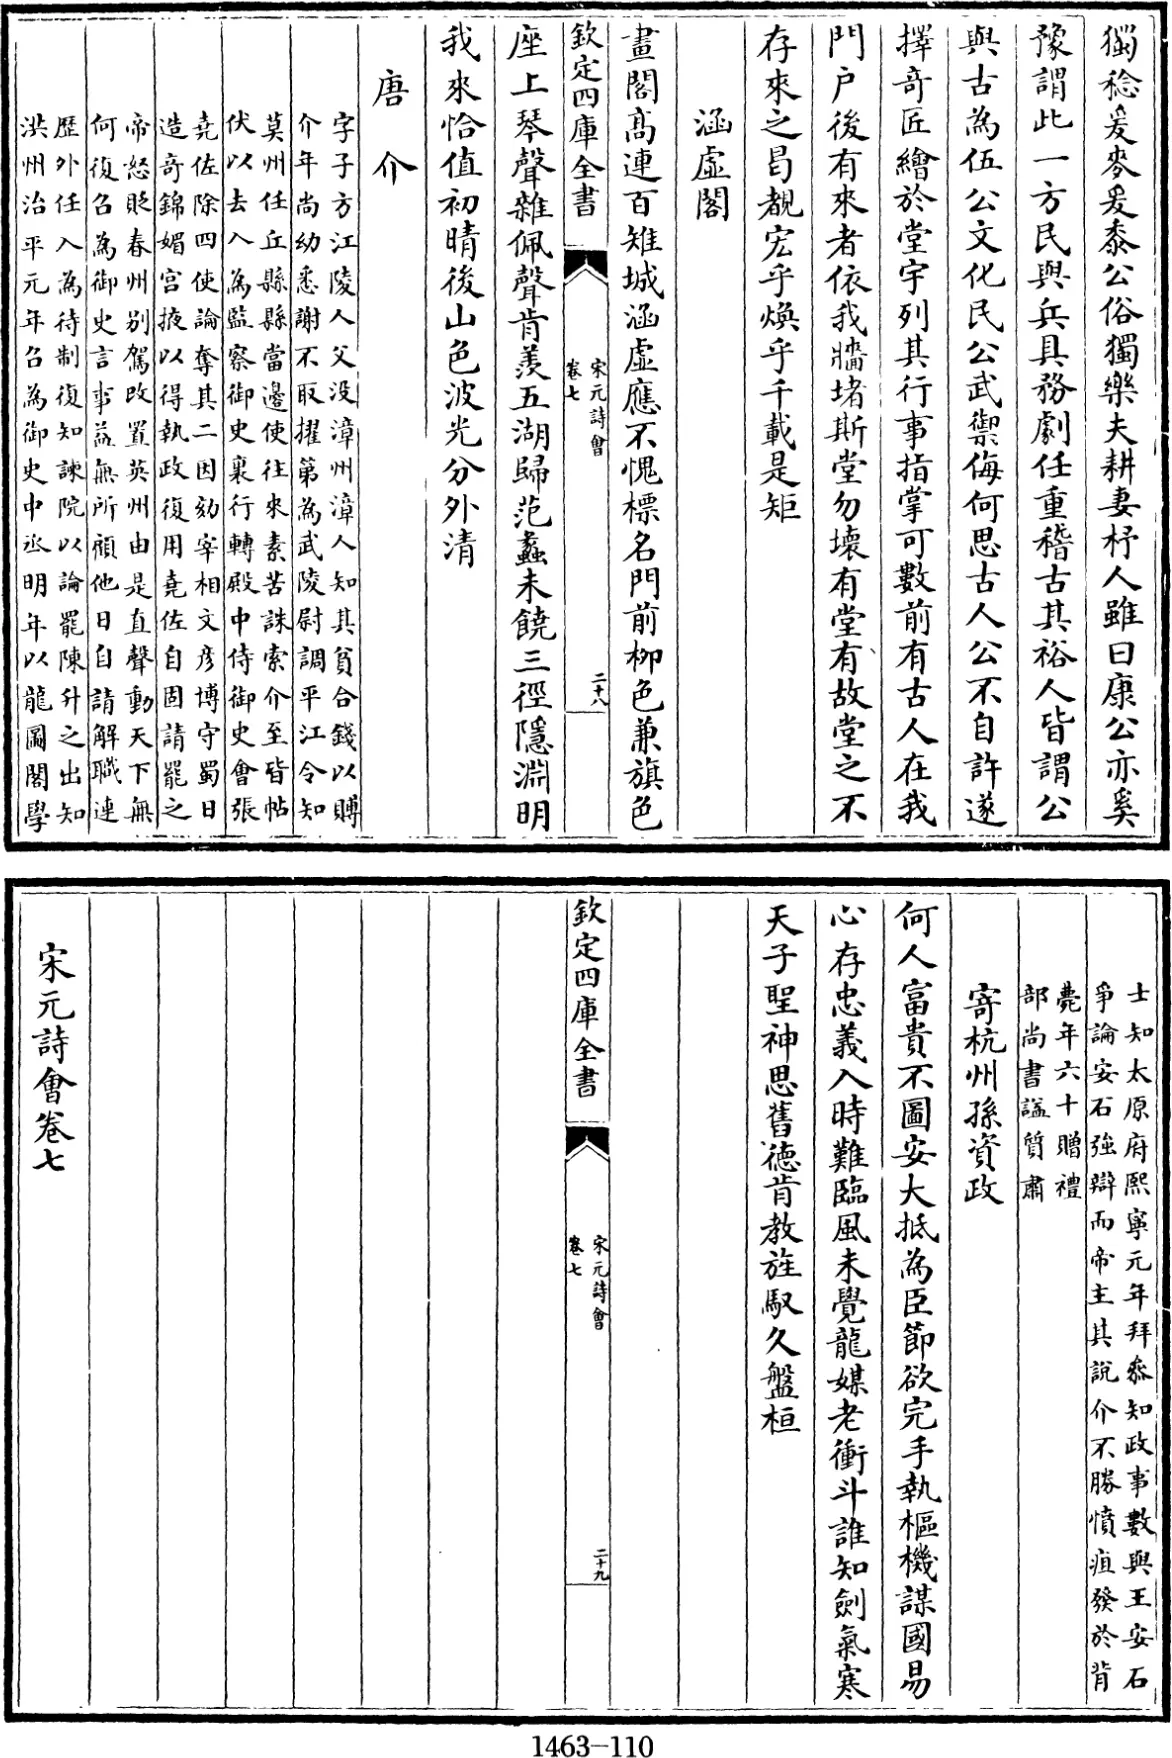 獨稔爰麥爰黍公俗獨樂夫耕妻杼人雖曰康公亦奚
豫謂此一方民與兵具務劇任重稽古其裕人皆謂公
與古為伍公文化民公武禦侮何思古人公不自許遂
擇奇匠繪於堂宇列其行事指掌可數前有古人在我
門户後有來者依我牆堵斯堂勿壞有堂有故堂之不
存來之曷覩宏乎煥乎千載是矩
涵虛閣
畫閣髙連百雉城涵虛應不愧標名門前柳色兼旗色
欽定四庫全書
宋元詩會
卷七
二十八
座上琴聲雜佩聲肯羨五湖歸范蠡未饒三徑隱淵明
我來恰值初晴後山色波光分外清
唐介
字子方江陵人父没漳州漳人知其貧合錢以賻
介年尚幼悉謝不取擢第為武陵尉調平江令知
莫州任丘縣縣當邊使往來素苦誅索介至皆帖
伏以去入為監察御史裏行轉殿中侍御史會張
堯佐除四使論奪其二因劾宰相文彦博守蜀日
造奇錦媚宫掖以得執政復用堯佐自固請罷之
帝怒貶春州别駕改置英州由是直聲動天下無
何復召為御史言事益無所顧他日自請解職連
歷外任入為待制復知諫院以論罷陳升之出知
洪州治平元年召為御史中丞明年以龍圖閣學
士知太原府熙寧元年拜叅知政事數與王安石
爭論安石強辯而帝主其說介不勝憤疽發於背
薨年六十贈禮
部尚書諡質肅
寄杭州孫資政
何人富貴不圖安大抵為臣節欲完手執樞機謀國易
心存忠義入時難臨風未覺龍媒老衝斗誰知劍氣寒
天子聖神思舊德肯教旌馭久盤桓
欽定四庫全書
宋元詩會
卷七
二十九
宋元詩會卷七
1463-110